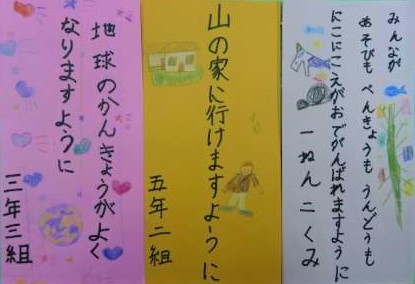 みんなが
あそびも べんきょうも うんどうも
にこにこえがおでがんばれますように
一ねん二くみ
山の家に行けますように
五年二組
地球のかんきょうがよく
なりますように
三年三組